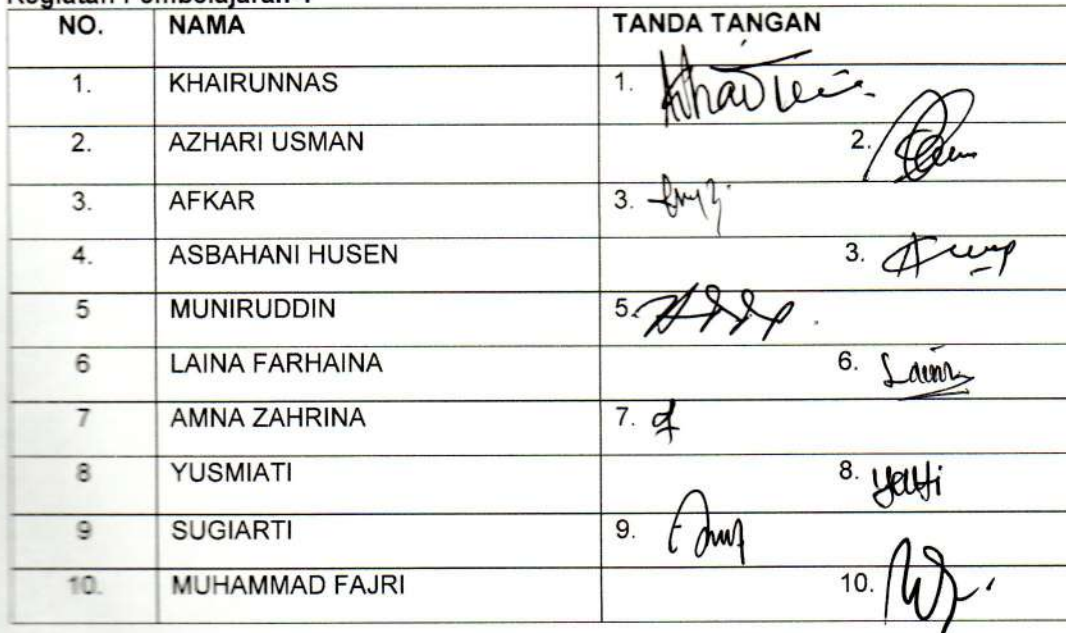 NO. NAMA TANDA TANGAN
1. KHAIRUNNAS 1.
2. AZHARI USMAN 2.
3. AFKAR 3.
4. ASBAHANI HUSEN 3.
5 MUNIRUDDIN 5.
6 LAINA FARHAINA 6.
7 AMNA ZAHRINA 7.
8 YUSMIATI 8.
9 SUGIARTI 9.
10. MUHAMMAD FAJRI 10.